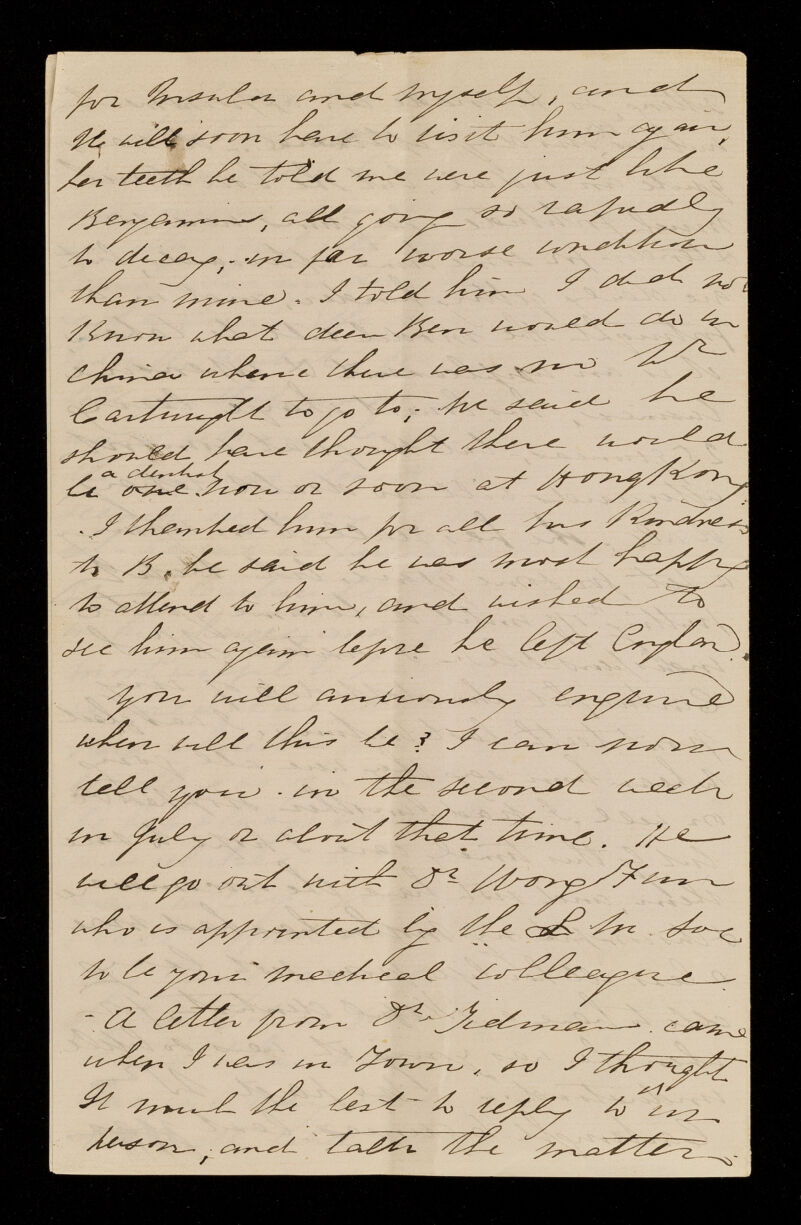 for Insulor and myself, and
He will soon have to visit him again,
her teeth he told me were just like
Benjamins, all going so rapidly
to decay, in far worse condition
than mine. I told him I did not
know what dear Ben would do in
China where there was no Mr
Cartwright to go to; he said he
should have thought there would
be a dentist now or soon at HongKong
. I thanked him for all his kindness
to B. he said he was most happy
to attend to him, and wished to
see him again before he left England.
you will anxiously enquire
when will this be? I can now
tell you. in the second week
in July or about that time. He
will go out with Dr Wong Fun
who is appointed by the L M. Soc
to be your medical colleague
- A letter from Dr. Tidman came
when I was in Town, so I thought
It much the best to reply to it in
person, and talk the matter